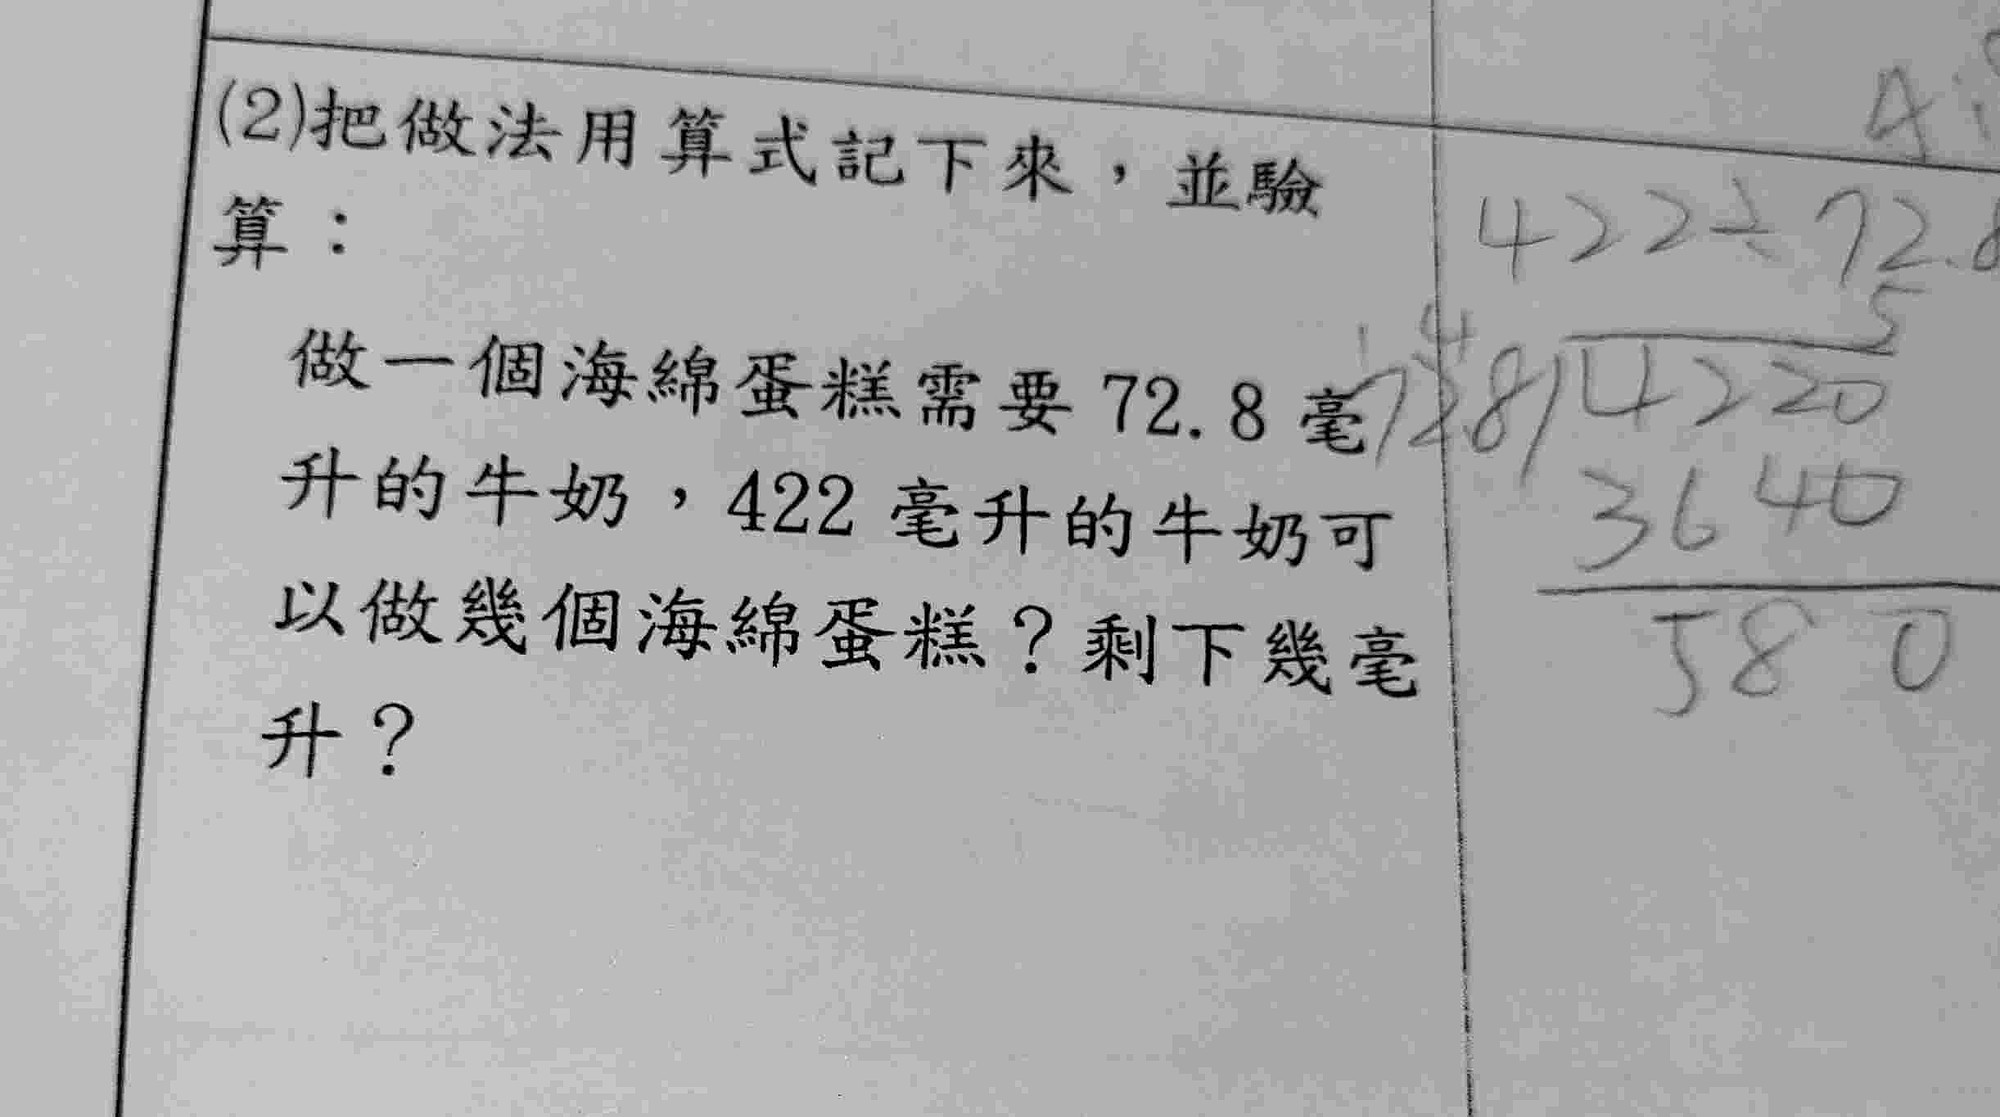 (2)把做法用算式記下來，並驗
算：
做一個海綿蛋糕需要 72.8 毫
升的牛奶，422 毫升的牛奶可
以做幾個海綿蛋糕？剩下幾毫
升？
422÷72.8
5
1 4
72.8)4220
3640
580